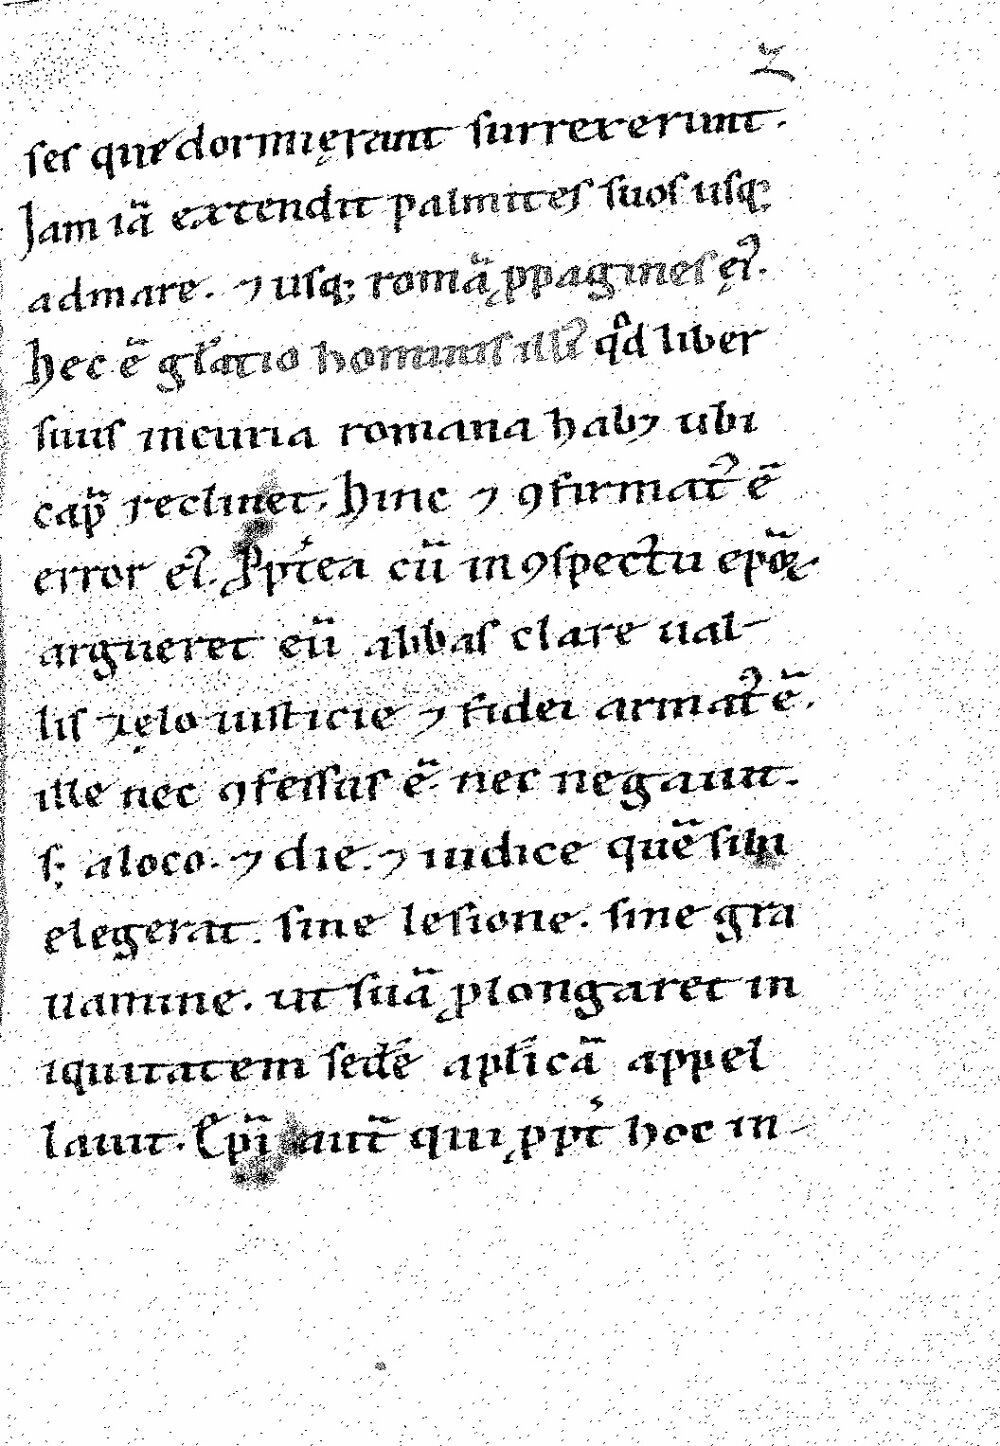 ſeſ que dormięrant ſurrexerunt.
Jam iā extendit palmiteſ ſuoſ uſq;
admare. ⁊ uſq; romā ꝓpagineſ ęiꝰ.
hec ē gl̄atio hominiſ illiꝰ qͦd liber
ſuuſ incuria romana habꝫ ubi
cap̄ reclinet. hinc ⁊ ꝯfirmatꝰ ē
error eiꝰ. Ꝓpt̄ea cū in ꝯſpectu ep̄oꝝ
argueret eū abbaſ clare ual-
liſ zęlo iuſticie ⁊ fidei armatꝰ ē.
ille nec ꝯfeſſuſ ē. nec negauit.
ſꝫ a loco. ⁊ die. ⁊ iudice quē ſibi
elegerat. ſine leſione. ſine gra
uamine. ut ſuā ꝓlongaret in
iquitatem ſedē apl̄icā appel
lauit. Ep̄i aut̄ qui ꝓpt̄ hoc in-